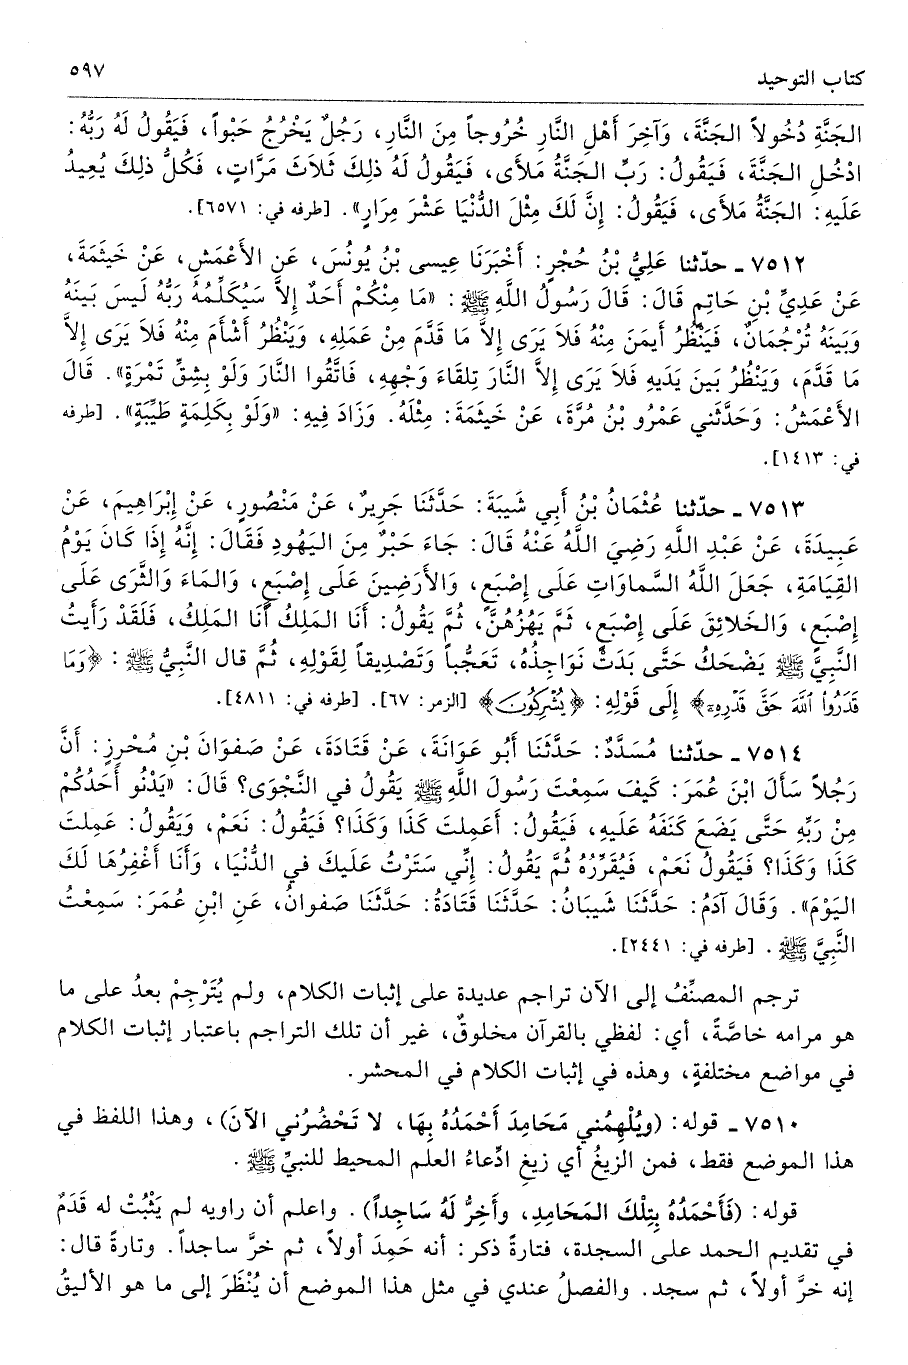 كتاب التوحيد ٥٩٧
الجَنَّةِ دُخُولاً الجَنَّةَ، وَآخِرَ أَهْلِ النَّارِ خُرُوجاً مِنَ النَّارِ، رَجُلٌ يَخْرُجُ حَبْواً، فَيَقُولُ لَهُ رَبُّهُ:
ادْخُلِ الجَنَّةَ، فَيَقُولُ: رَبِّ الجَنَّةُ مَلأى، فَيَقُولُ لَهُ ذلِكَ ثَلاَثَ مَرَّاتٍ، فَكُلُّ ذلِكَ يُعِيدُ
عَلَيهِ: الجَنَّةُ مَلأى، فَيَقُولُ: إِنَّ لَكَ مِثْلَ الدُّنْيَا عَشْرَ مِرَارٍ». [طرفه في: ٦٥٧١].
٧٥١٢ ـ حدّثنا عَلِيُّ بْنُ حُجْرٍ: أَخْبَرَنَا عِيسى بْنُ يُونُسَ، عَنِ الأَعْمَشِ، عَنْ خَيثَمَةَ،
عَنْ عَدِيِّ بْنِ حَاتِمٍ قَالَ: قَالَ رَسُولُ اللَّهِ ﷺ: «مَا مِنْكُمْ أَحَدٌ إِلاَّ سَيُكَلِّمُهُ رَبُّهُ لَيسَ بَينَهُ
وَبَينَهُ تُرْجُمَانٌ، فَيَنْظُرُ أَيمَنَ مِنْهُ فَلاَ يَرَى إِلاَّ مَا قَدَّمَ مِنْ عَمَلِهِ، وَيَنْظُرُ أَشْأَمَ مِنْهُ فَلاَ يَرَى إِلاَّ
مَا قَدَّمَ، وَيَنْظُرُ بَينَ يَدَيهِ فَلاَ يَرَى إِلاَّ النَّارَ تِلقَاءَ وَجْهِهِ، فَاتَّقُوا النَّارَ وَلَوْ بِشِقِّ تَمْرَةٍ». قَالَ
الأَعْمَشُ: وَحَدَّثَني عَمْرُو بْنُ مُرَّةَ، عَنْ خَيثَمَةَ: مِثْلَهُ. وَزَادَ فِيهِ: «وَلَوْ بِكَلِمَةٍ طَيِّبَةٍ». [طرفه
في: ١٤١٣].
٧٥١٣ ـ حدّثنا عُثْمَانُ بْنُ أَبِي شَيبَةَ: حَدَّثَنَا جَرِيرٌ، عَنْ مَنْصُورٍ، عَنْ إِبْرَاهِيمَ، عَنْ
عَبِيدَةَ، عَنْ عَبْدِ اللَّهِ رَضِيَ اللَّهُ عَنْهُ قَالَ: جَاءَ حَبْرٌ مِنَ اليَهُودِ فَقَالَ: إِنَّهُ إِذَا كَانَ يَوْمُ
القِيَامَةِ، جَعَلَ اللَّهُ السَّماوَاتِ عَلَى إِصْبَعٍ، وَالأَرَضِينَ عَلَى إِصْبَعٍ، وَالمَاءَ وَالثَّرَى عَلَى
إِصْبَعٍ، وَالخَلائِقَ عَلَى إِصْبَعٍ، ثُمَّ يَهُزُهُنَّ، ثُمَّ يَقُولُ: أَنَا المَلِكُ أَنَا المَلِكُ، فَلَقَدْ رَأَيتُ
النَّبِيَّ ﷺ يَضْحَكُ حَتَّى بَدَتْ نَوَاجِذُهُ، تَعَجُّباً وَتَصْدِيقاً لِقَوْلِهِ، ثُمَّ قال النَّبِيُّ ﷺ: ﴿وَمَا
قَدَرُوا۟ ٱللَّهَ حَقَّ قَدۡرِهِۦ﴾ إِلَى قَوْلِهِ: ﴿يُشْرِكُونَ﴾ [الزمر: ٦٧]. [طرفه في: ٤٨١١].
٧٥١٤ ـ حدّثنا مُسَدَّدٌ: حَدَّثَنَا أَبُو عَوَانَةَ، عَنْ قَتَادَةَ، عَنْ صَفوَانَ بْنِ مُحْرِزٍ: أَنَّ
رَجُلاً سَأَلَ ابْنَ عُمَرَ: كَيفَ سَمِعْتَ رَسُولَ اللَّهِ ﷺ يَقُولُ في النَّجْوَى؟ قَالَ: «يَدْنُو أَحَدُكُمْ
مِنْ رَبِّهِ حَتَّى يَضَعَ كَنَفَهُ عَلَيهِ، فَيَقُولُ: أَعَمِلتَ كَذَا وَكَذَا؟ فَيَقُولُ: نَعَمْ، وَيَقُولُ: عَمِلتَ
كَذَا وَكَذَا؟ فَيَقُولُ نَعَمْ، فَيُقَرِّرُهُ ثُمَّ يَقُولُ: إِنِّي سَتَرْتُ عَلَيكَ في الدُّنْيَا، وَأَنَا أَغْفِرُهَا لَكَ
اليَوْمَ». وَقَالَ آدَمُ: حَدَّثَنَا شَيبَانُ: حَدَّثَنَا قَتَادَةُ: حَدَّثَنَا صَفوانُ، عَنِ ابْنِ عُمَرَ: سَمِعْتُ
النَّبِيَّ ﷺ. [طرفه في: ٢٤٤١].
ترجم المصنِّفُ إلى الآن تراجم عديدة على إثبات الكلام، ولم يُتَرْجِمْ بعدُ على ما
هو مرامه خاصَّةً، أي: لفظي بالقرآن مخلوقٌ، غير أن تلك التراجم باعتبار إثبات الكلام
في مواضع مختلفةٍ، وهذه في إثبات الكلام في المحشر.
٧٥١٠ ـ قوله: (ويُلْهِمُني مَحَامِدَ أَحْمَدُهُ بِهَا، لا تَحْضُرُني الآنَ)، وهذا اللفظ في
هذا الموضع فقط، فمن الزيغُ أي زيغٍ ادِّعاءُ العلم المحيط للنبيِّ ﷺ.
قوله: (فَأَحْمَدُهُ بِتِلْكَ المَحَامِدِ، وأَخِرُّ لَهُ سَاجِداً). واعلم أن راويه لم يَثْبُتْ له قَدَمٌ
في تقديم الحمد على السجدة، فتارةً ذكر: أنه حَمِدَ أولاً، ثم خرَّ ساجداً. وتارةً قال:
إنه خرَّ أولاً، ثم سجد. والفصلُ عندي في مثل هذا الموضع أن يُنْظَرَ إلى ما هو الأليقُ